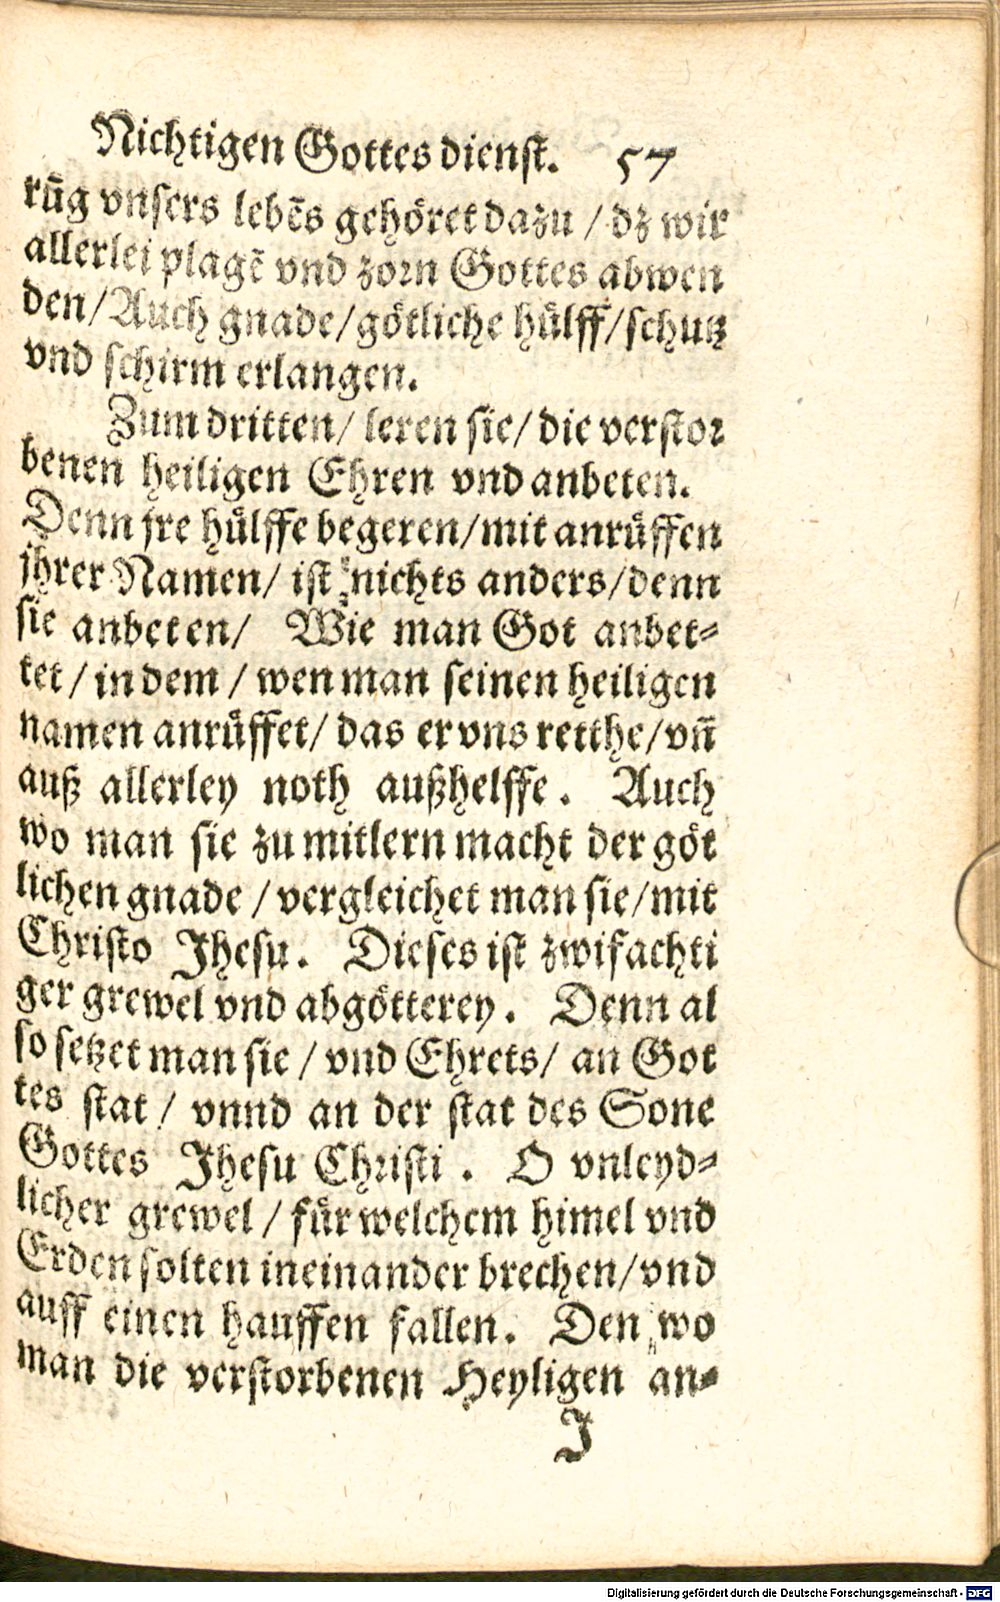 Nichtigen Gottesdienst. 57
rūg vnsers lebēs gehöret dazu / dz wir
allerlei plagē vnd zorn Gottes abwen
den/Auch gnade/götliche hülff/schutz
vnd schirm erlangen.
Zum dritten/ leren sie/ die verstor
benen heiligen Ehren vnd anbeten.
Denn jre hülffe begeren/mit anrüffen
jhrer Namen/ ist nichts anders/denn
sie anbeten/ Wie man Got anbet-
tet / in dem / wen man seinen heiligen
namen anrüffet/ das er vns retthe/vn̄
auß allerley noth außhelffe. Auch
wo man sie zu mitlern macht der göt
lichen gnade / vergleichet man sie/mit
Christo Jhesu. Dieses ist zwifachti
ger grewel vnd abgötterey. Denn al
so setzet man sie / vnd Ehrets/ an Got
tes stat / vnnd an der stat des Sone
Gottes Jhesu Christi. O vnleyd-
licher grewel / für welchem himel vnd
Erden solten ineinander brechen/vnd
auff einen hauffen fallen. Den wo
man die verstorbenen Heyligen an-
J
Digitalisierung gefördert durch die Deutsche Forschungsgemeinschaft - DFG